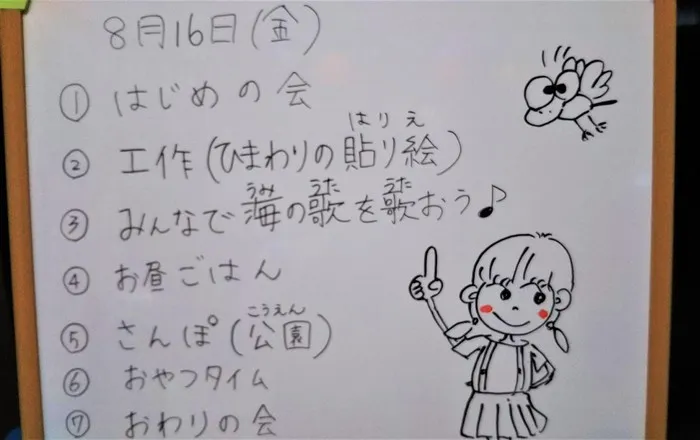 8月16日(金)
① はじめの会
はりえ
② 工作(ひまわりの貼り絵)
うみ うた うた
③ みんなで海の歌を歌おう♪
④ お昼ごはん
こうえん
⑤ さんぽ(公園)
⑥ おやつタイム
⑦ おわりの会